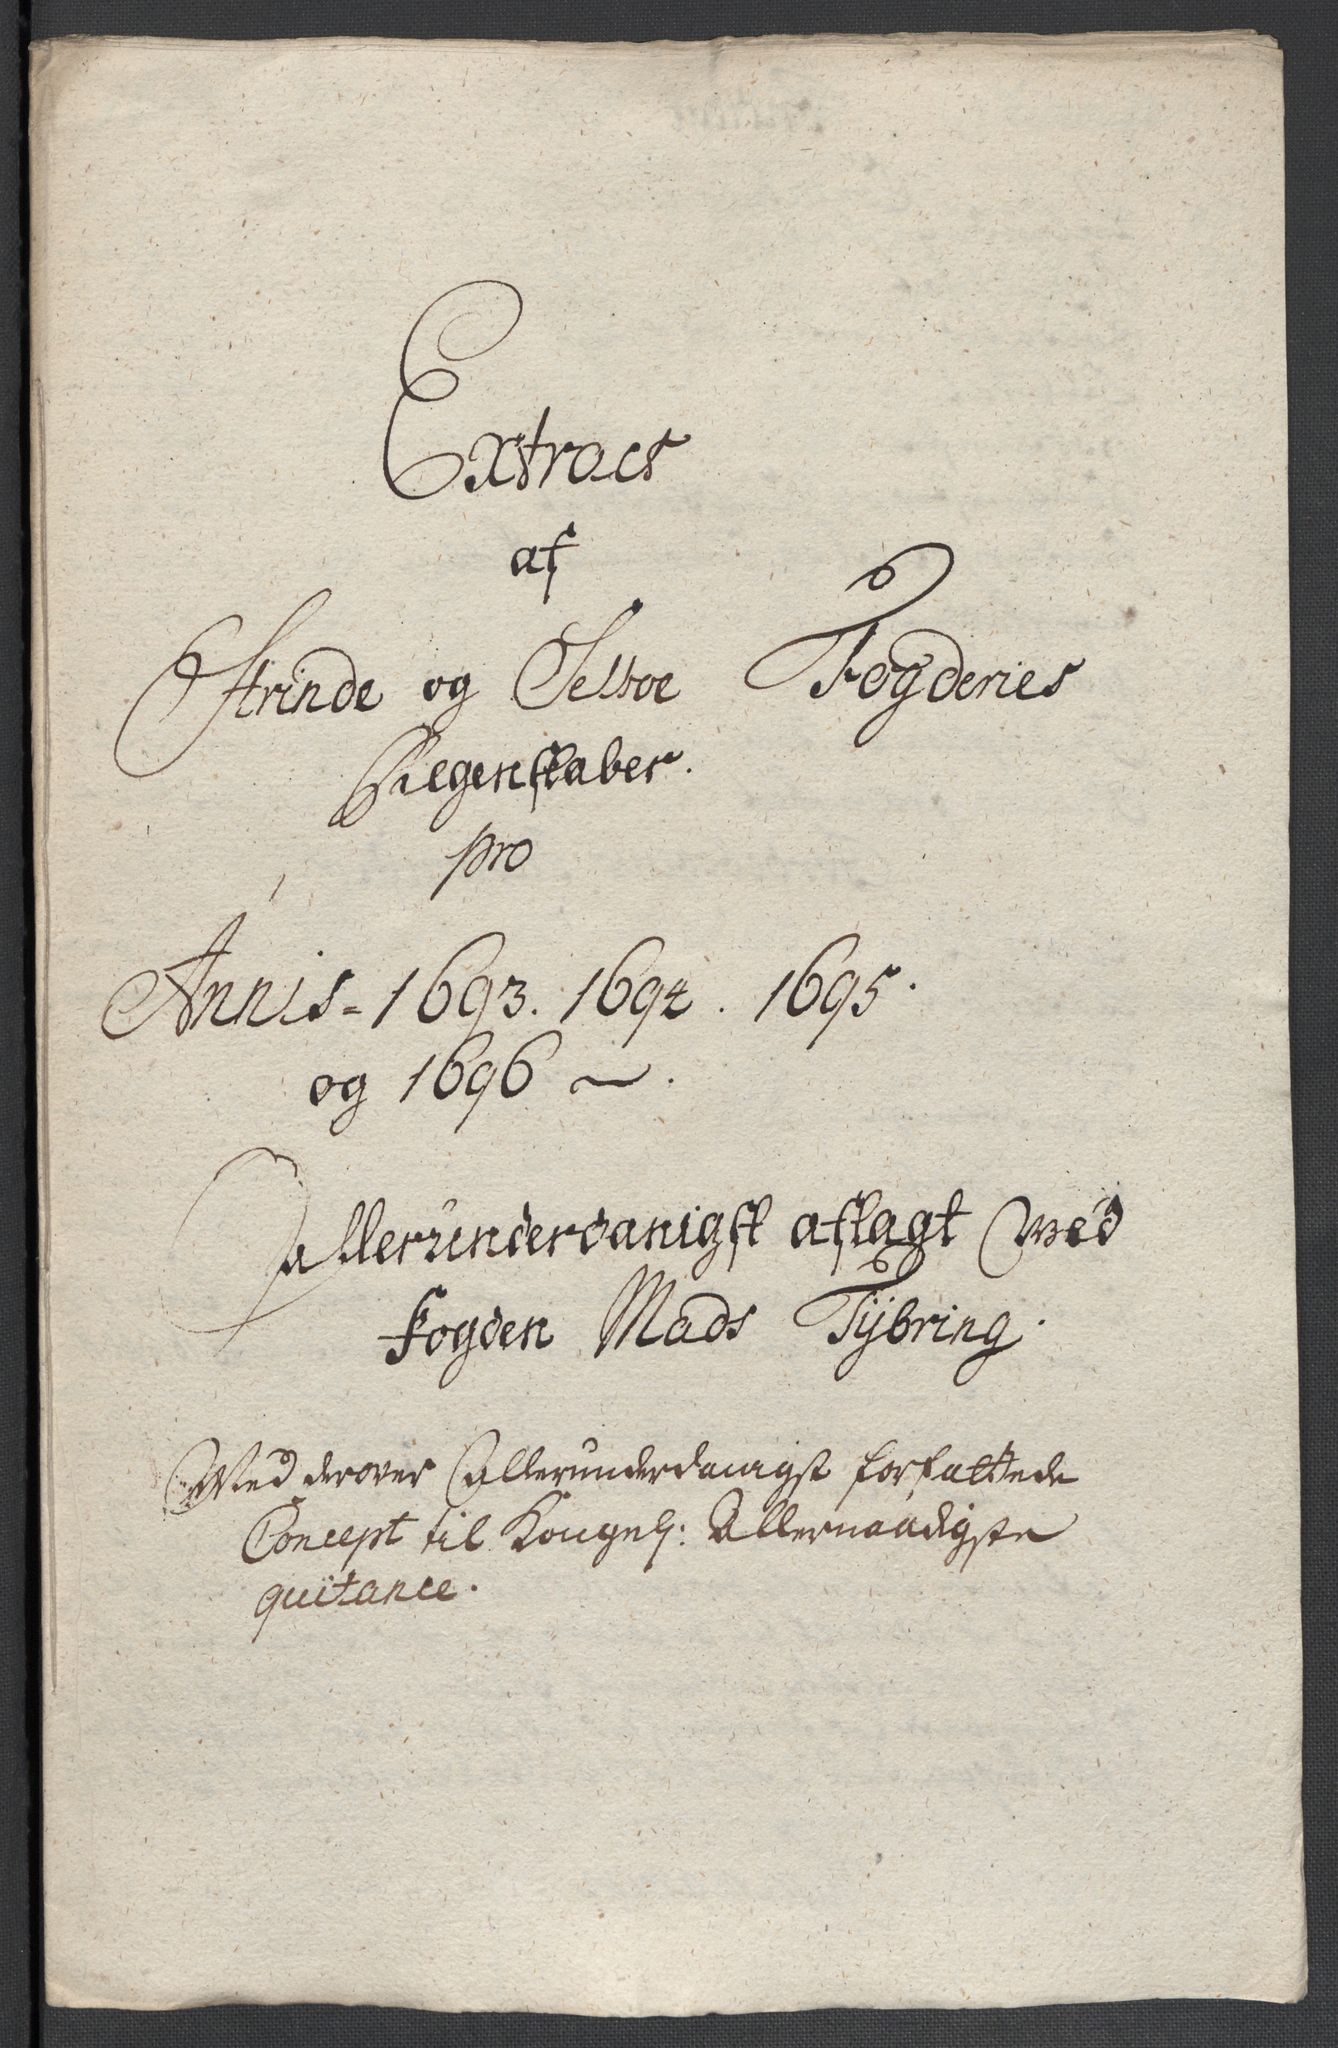 Extract
af
Strinde og Selboe Fogderies
Regenskaber.
pro
Annis - 1693. 1694. 1695.
og 1696 ~.
Allerunderdanigst aflagt Med
fogden Mads Tÿbring.
Med derover Allerunderdanigst forfattede
Concept til Kongel: Allernaadigste
quitance.